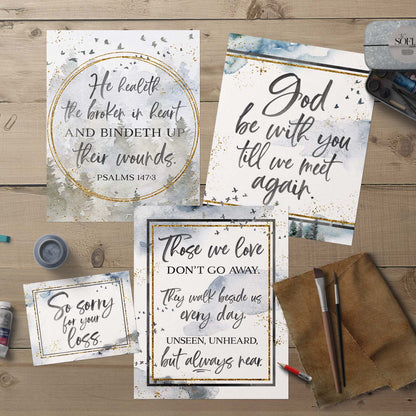 He healeth
the broken in heart
AND BINDETH UP
their wounds.
PSALMS 147:3
God
be with you
till we meet
again
Those we love
DON'T GO AWAY.
They walk beside us
every day.
UNSEEN, UNHEARD,
but always near.
So sorry
for your
loss.